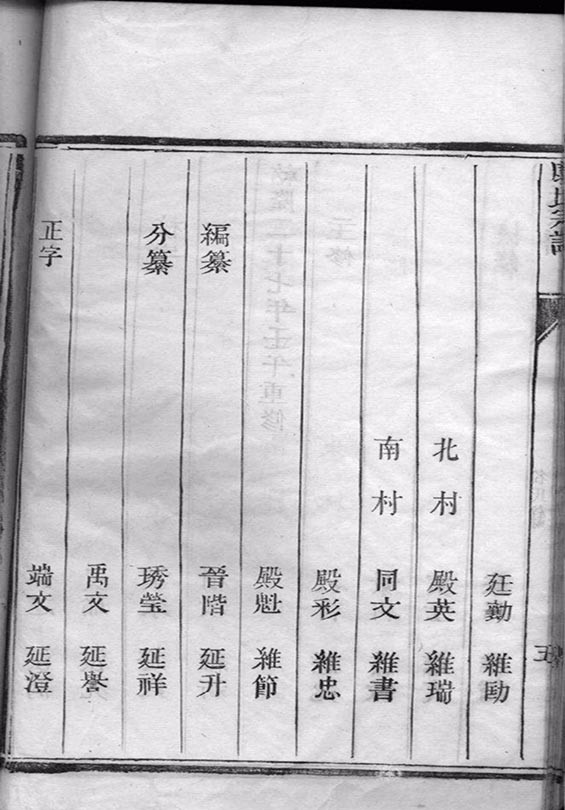 廷勳 維勛
北村 殿英 維瑞
南村 同文 維書
殿彩 維忠
殿魁 維節
編纂 晉階 延升
分纂 琇瑩 延祥
禹文 延譽
正字 端文 延澄
氏宗譜
五